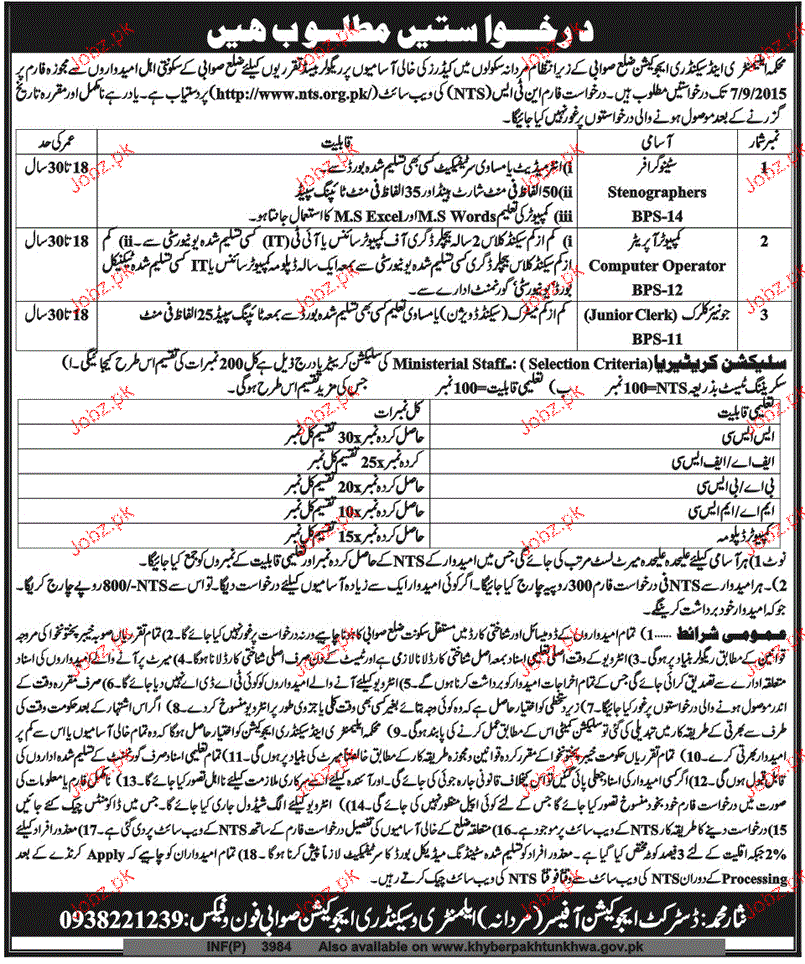 درخواستیں مطلوب ہیں
محکمہ ایلیمنٹری اینڈ سیکنڈری ایجوکیشن ضلع صوابی کے زیر انتظام مردانہ سکولوں میں کیڈرز کی خالی آسامیوں پر ریگولر بیسڈ تقرریوں کیلئے ضلع صوابی کے سکونتی اہل امیدواروں سے مجوزہ فارم پر
7/9/2015 تک درخواستیں مطلوب ہیں۔ درخواست فارم این ٹی ایس (NTS) کی ویب سائٹ (http://www.nts.org.pk/) پر دستیاب ہے۔ یاد رہے نامکمل اور مقررہ تاریخ
گزرنے کے بعد موصول ہونے والی درخواستوں پر غور نہیں کیا جائیگا۔
نمبر شمار آسامی قابلیت عمر کی حد
1 سٹینوگرافر i) انٹرمیڈیٹ یا مساوی سرٹیفکیٹ کسی بھی تسلیم شدہ بورڈ سے 18 تا 30 سال
Stenographers ii) 50 الفاظ فی منٹ شارٹ ہینڈ اور 35 الفاظ فی منٹ ٹائپنگ سپیڈ
BPS-14 iii) کمپیوٹر کی تعلیم M.S Words اور M.S Excel کا استعمال جانتا ہو۔
2 کمپیوٹر آپریٹر i) کم از کم سیکنڈ کلاس 2 سالہ بیچلر ڈگری آف کمپیوٹر سائنس یا آئی ٹی (IT) کسی تسلیم شدہ یونیورسٹی سے۔ ii) کم 18 تا 30 سال
Computer Operator از کم سیکنڈ کلاس بیچلر ڈگری کسی تسلیم شدہ یونیورسٹی سے بمعہ ایک سالہ ڈپلومہ کمپیوٹر سائنس یا IT کسی تسلیم شدہ ٹیکنیکل
BPS-12 بورڈ/یونیورسٹی/گورنمنٹ ادارے سے۔
3 جونیئر کلرک (Junior Clerk) کم از کم میٹرک (سیکنڈ ڈویژن) یا مساوی تعلیم کسی بھی تسلیم شدہ بورڈ سے بمعہ ٹائپنگ سپیڈ 25 الفاظ فی منٹ 18 تا 30 سال
BPS-11
سلیکشن کریٹیریا (Selection Criteria) :۔ Ministerial Staff کی سلیکشن کریٹیریا درج ذیل ہے کل 200 نمبرات کی تقسیم اس طرح کیجائیگی۔ ا)
سکریننگ ٹیسٹ بذریعہ NTS=100 نمبر ب) تعلیمی قابلیت=100 نمبر جس کی مزید تقسیم اس طرح ہوگی۔
تعلیمی قابلیت کل نمبرات
ایس ایس سی حاصل کردہ نمبر x30 تقسیم کل نمبر
ایف اے/ایف ایس سی کردہ نمبر x25 تقسیم کل نمبر
بی اے/بی ایس سی حاصل کردہ نمبر x20 تقسیم کل نمبر
ایم اے/ایم ایس سی حاصل کردہ نمبر x10 تقسیم کل نمبر
کمپیوٹر ڈپلومہ حاصل کردہ نمبر x15 تقسیم کل نمبر
نوٹ 1) ہر آسامی کیلئے علیحدہ علیحدہ میرٹ لسٹ مرتب کی جائے گی جس میں امیدوار کے NTS کے حاصل کردہ نمبر اور تعلیمی قابلیت کے نمبروں کو جمع کیا جائیگا۔
2)۔ ہر امیدوار سے NTS فی درخواست فارم 300 روپیہ چارج کیا جائیگا۔ اگر کوئی امیدوار ایک سے زیادہ آسامیوں کیلئے درخواست دیگا۔ تو اس سے NTS-800/- روپے چارج کریگا۔
جو کہ امیدوار خود برداشت کرینگے۔
عمومی شرائط ...... 1) تمام امیدواروں کے ڈومیسائل اور شناختی کارڈ میں مستقل سکونت ضلع صوابی کا ہونا چاہیے ورنہ درخواست پر غور نہیں کیا جائے گا۔ 2) تمام تقرریاں صوبہ خیبر پختونخوا کی مروجہ
قوانین کے مطابق ریگولر بنیاد پر ہوگی۔ 3) انٹرویو کے وقت اصلی تعلیمی اسناد بمعہ اصل شناختی کارڈ لانا لازمی ہے اور ٹیسٹ کے دن صرف اصلی شناختی کارڈ لانا ہوگا۔ 4) میرٹ پر آنے والے امیدواروں کی اسناد
متعلقہ ادارے سے تصدیق کرائی جائے گی جس کے تمام اخراجات امیدوار کو برداشت کرنا ہوں گے۔ 5) انٹرویو کیلئے آنے والے امیدواروں کو کوئی ٹی اے ڈی اے نہیں دیا جائے گا۔ 6) صرف مقررہ وقت کے
اندر موصول ہونے والی درخواستوں پر غور کیا جائیگا۔ 7) زیر دستخطی کو اختیار حاصل ہے کہ وہ کوئی وجہ بتائے بغیر کسی بھی وقت کلی یا جزوی طور پر انٹرویو منسوخ کردے۔ 8) اگر اس اشتہار کے بعد حکومت کی
طرف سے بھرتی کے طریقہ کار میں تبدیلی کی گئی تو سلیکشن کمیٹی اس کے مطابق عمل کرنے کی پابند ہوگی۔ 9) محکمہ ایلیمنٹری اینڈ سیکنڈری ایجوکیشن کو اختیار حاصل ہوگا کہ وہ تمام خالی آسامیوں یا اس سے کم پر
امیدوار بھرتی کرے۔ 10) تمام تقرریاں حکومت خیبر پختونخوا کے مقرر کردہ قوانین و مجوزہ طریقہ کار کے مطابق خالصتاً میرٹ کی بنیاد پر ہوں گی۔ 11) تمام تعلیمی اسناد صرف گورنمنٹ کے تسلیم شدہ اداروں کی
قابل قبول ہوں گی۔ 12) اگر کسی امیدوار کی اسناد جعلی پائی گئیں تو ان کیخلاف قانونی چارہ جوئی کی جائے گی۔ اور آئندہ کیلئے اسے سرکاری ملازمت کیلئے نااہل تصور کیا جائے گا۔ 13) نامکمل فارم یا معلومات کی
صورت میں درخواست فارم خود بخود منسوخ تصور کیا جائے گا جس کے لئے کوئی اپیل منظور نہیں کی جائے گی۔ 14)) انٹرویو کیلئے الگ شیڈول جاری کیا جائے گا۔ جس میں ڈاکومنٹس چیک کئے جائیں
15) درخواست دینے کا طریقہ کار NTS کے ویب سائٹ پر موجود ہے۔ 16) متعلقہ ضلع کے خالی آسامیوں کی تفصیل درخواست فارم کے ساتھ NTS کے ویب سائٹ پر دی گئی ہے۔ 17) معذور افراد کیلئے
2% جبکہ اقلیت کے لئے 3 فیصد کوٹہ مختص کیا گیا ہے۔ معذور افراد کو تسلیم شدہ سٹینڈنگ میڈیکل بورڈ کا سرٹیفکیٹ لازماً پیش کرنا ہوگا۔ 18) تمام امیدواران کو چاہیے کہ Apply کرنے کے بعد
Processing کے دوران NTS کی ویب سائٹ سے وقتاً فوقتاً NTS کی ویب سائٹ چیک کرتے رہیں۔
نثار محمد: ڈسٹرکٹ ایجوکیشن آفیسر (مردانہ) ایلیمنٹری و سیکنڈری ایجوکیشن صوابی فون و فیکس: 0938221239
INF(P) 3984 Also available on www.khyberpakhtunkhwa.gov.pk